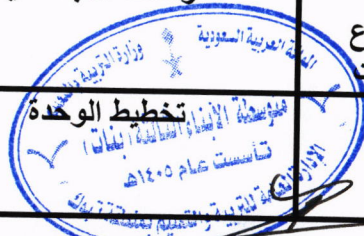 ع
المملكة العربية السعودية
وزارة التربية والتعليم
تخطيط الوحدة
متوسطة الأبناء الثالثة (بنات)
تأسست عام ١٤٠٥هـ
الإدارة العامة للتربية والتعليم بمنطقة تبوك